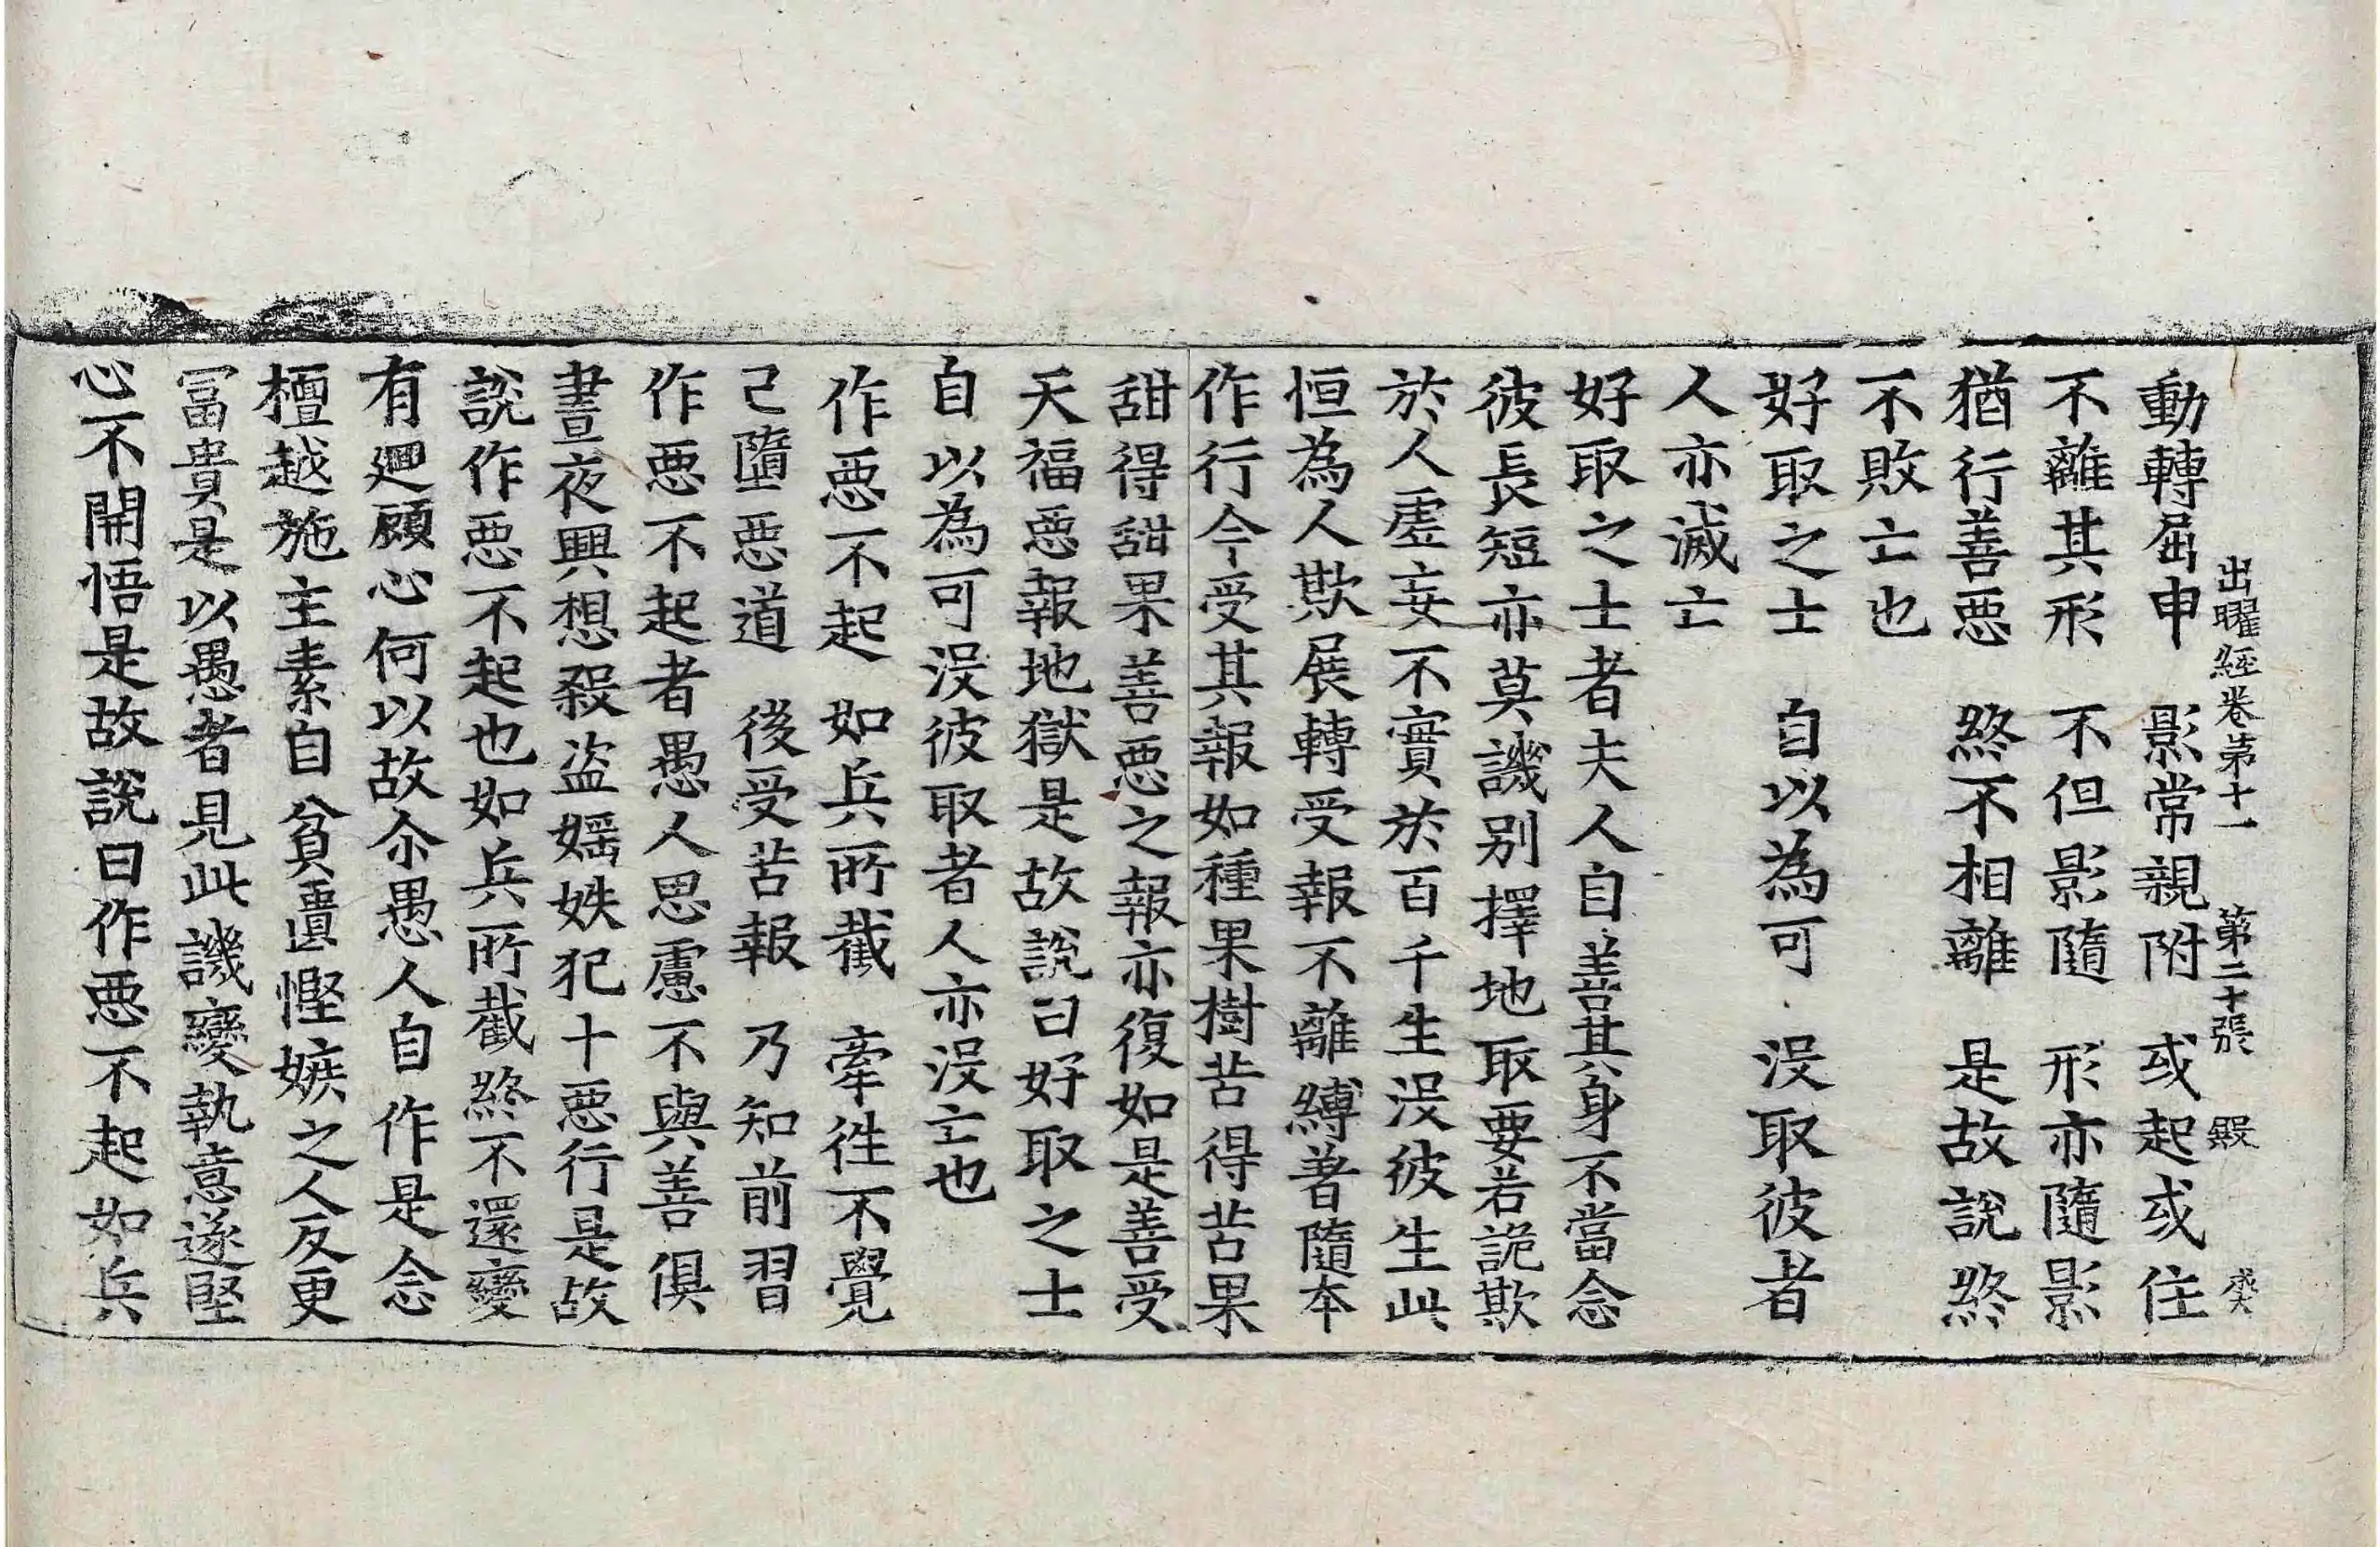 出曜經卷第十一　第二十張　殿　癸
動轉屈申　影常親附　或起或住
不離其形　不但影隨　形亦隨影
猶行善惡　終不相離　是故說終
不敗亡也
好取之士　自以為可　沒取彼者
人亦滅亡
好取之士者夫人自善其身不當念
彼長短亦莫譏別擇地取要若詭欺
於人虛妄不實於百千生沒彼生此
恒為人欺展轉受報不離縛著隨本
作行今受其報如種果樹苦得苦果
甜得甜果善惡之報亦復如是善受
天福惡報地獄是故說曰好取之士
自以為可沒彼取者人亦沒亡也
作惡不起　如兵所截　牽徃不覺
已墮惡道　後受苦報　乃知前習
作惡不起者愚人思慮不與善俱
晝夜興想殺盜婬妷犯十惡行是故
說作惡不起也如兵所截終不還變
有迴顧心何以故尒愚人自作是念
檀越施主素自貧匱慳嫉之人反更
冨貴是以愚者見此譏變執意遂堅
心不開悟是故說曰作惡不起如兵